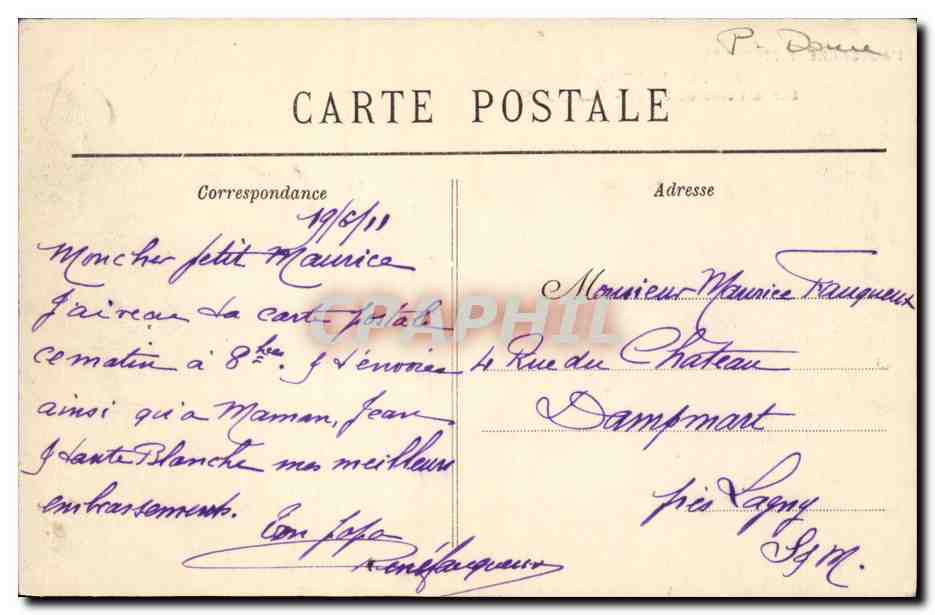 P. Doure
CARTE POSTALE
Correspondance
Adresse
19/6/11
Mon cher petit Maurice
J'ai reçu ta carte postale
ce matin à 8 hres. J t'envoie
ainsi qu'a Maman, Jean
& tante Blanche mes meilleurs
embrassements.
Ton papa
René Fauqueux
Monsieur Maurice Fauqueux
4 Rue du Chateau
Dampmart
près Lagny
S & M.
CPAPHIL